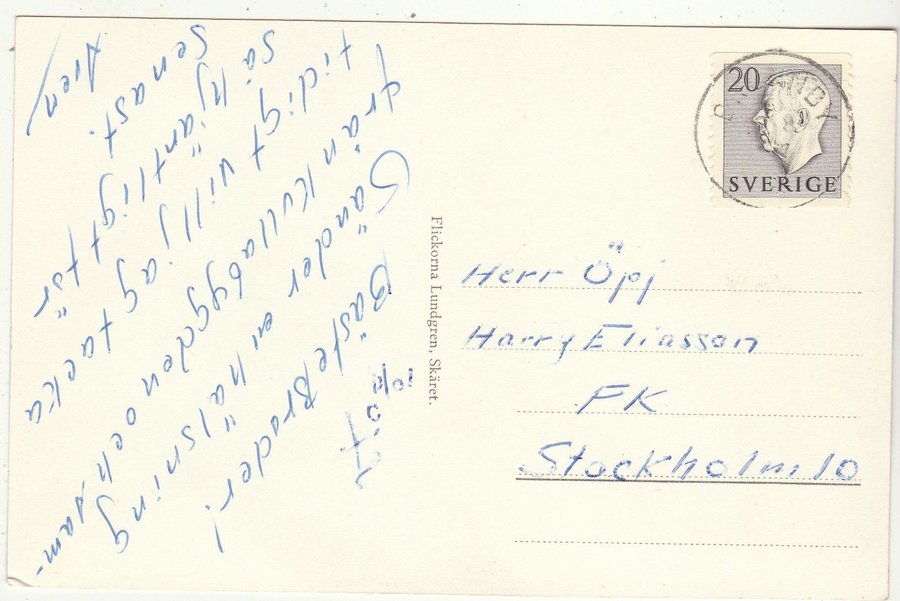 Bäste Broder!
Sänder en hälsning
från Kullabygden och sam-
tidigt vill jag tacka
så hjärtligt för
senast.
Flickorna Lundgren, Skäret.
20
SVERIGE
Herr Öpj
Harry Eliasson
FK
Stockholm 10